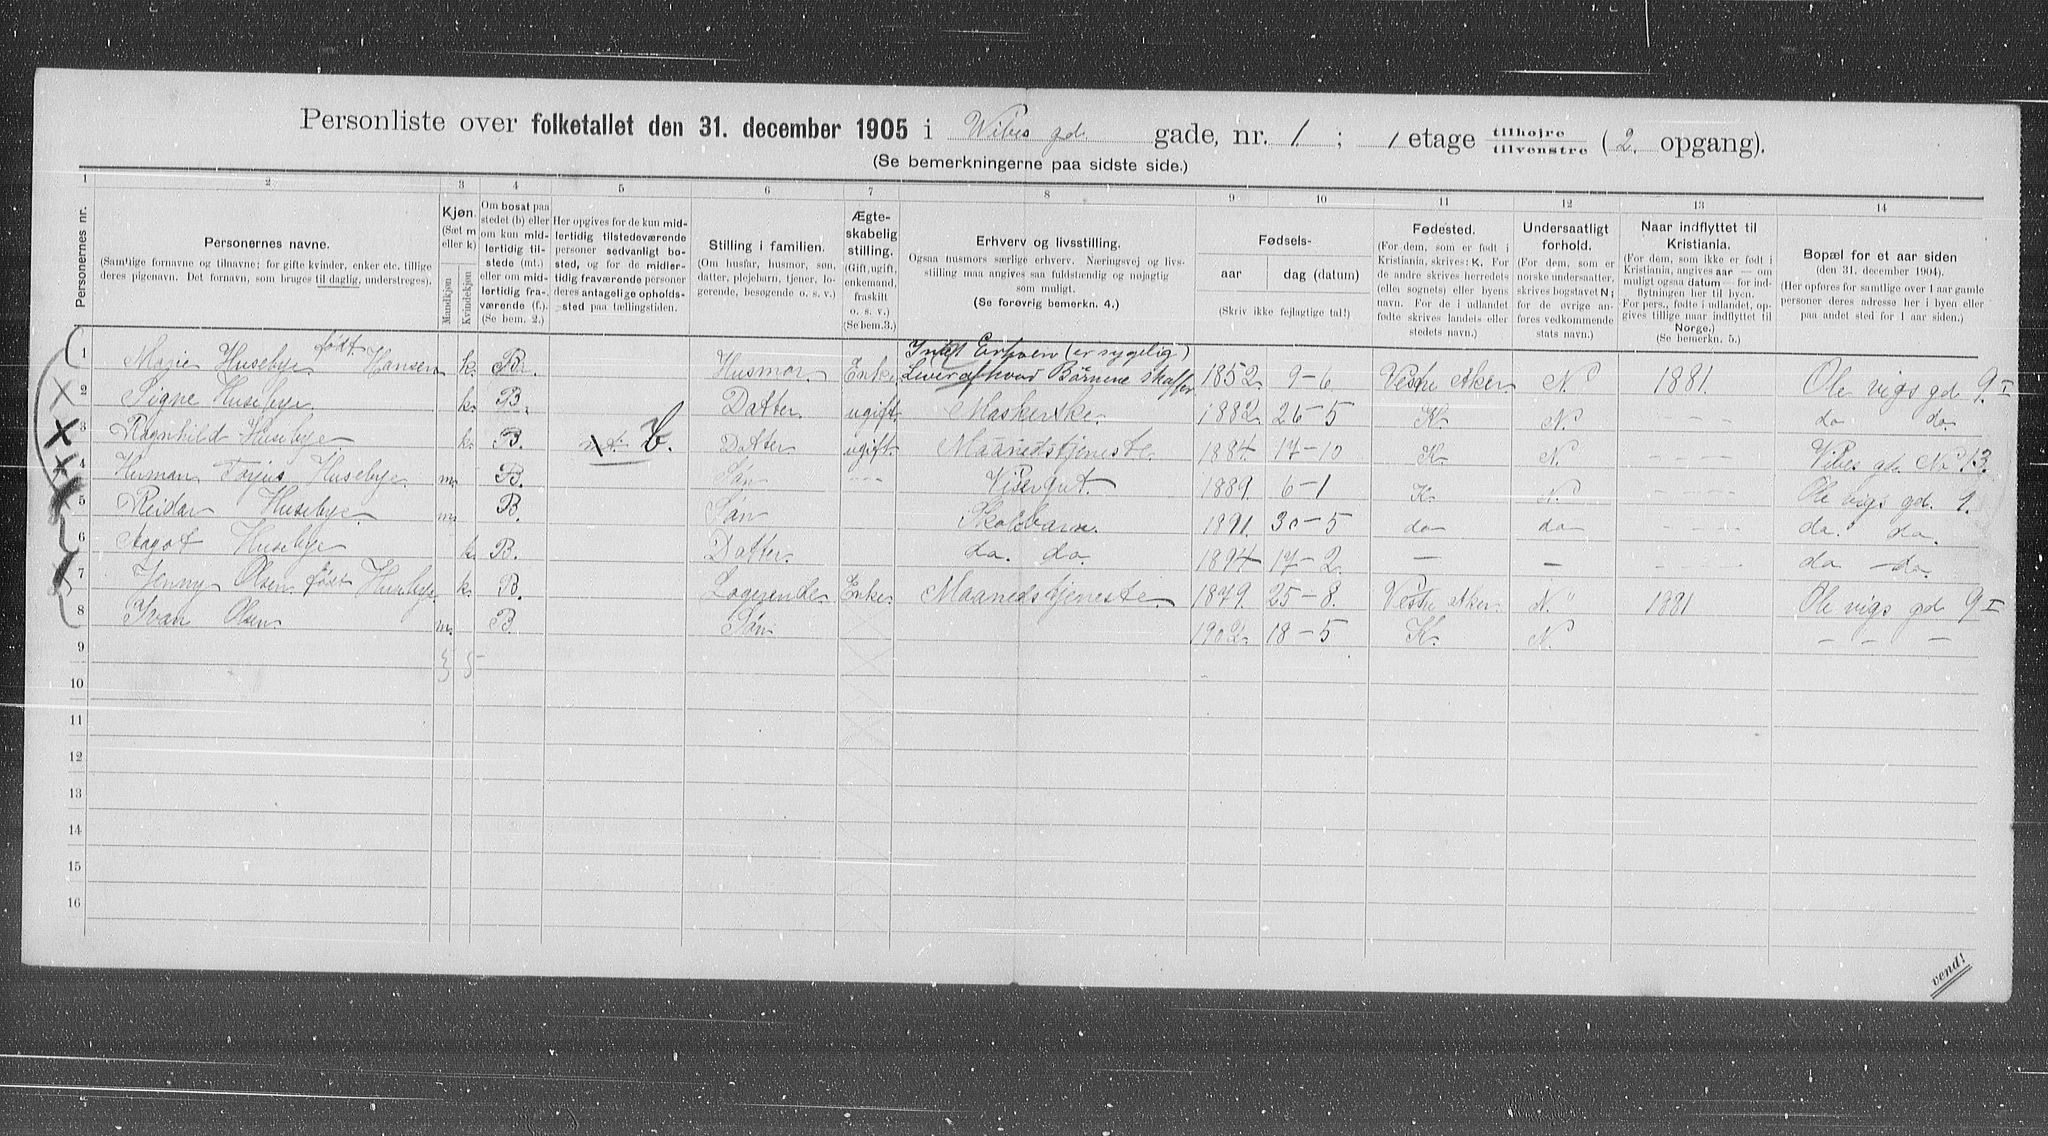 Personliste over folketallet den 31. december 1905 i Vibes gd. gade, nr. 1 ; 1 etage tilhøjre tilvenstre (2. opgang).
(Se bemerkningerne paa sidste side.)
1 2 3 4 5 6 7 8 9 10 11 12 13 14
Personernes nr.
Personernes navne.
(Samtlige fornavne og tilnavne; for gifte kvinder, enker etc. tillige deres pigenavn. Det fornavn, som bruges til daglig, understreges).
Kjøn.
(Sæt m eller k)
Mandkjøn
Kvindekjøn
Om bosat paa stedet (b) eller om kun midlertidig tilstede (mt.) eller om midlertidig fraværende (f.).
(Se bem. 2.)
Her opgives for de kun midlertidig tilstedeværende personer sedvanligt bosted, og for de midlertidig fraværende personer deres antagelige opholdssted paa tællingstiden.
Stilling i familien.
(Om husfar, husmor, søn, datter, plejebarn, tjener, logerende, besøgende o. s. v.)
Ægteskabelig stilling.
(Gift, ugift, enkemand, fraskilt o. s. v.)
(Se bem. 3.)
Erhverv og livsstilling.
Ogsaa husmors særlige erhverv. Næringsvej og livsstilling maa angives saa fuldstændig og nøjagtig som muligt.
(Se forøvrig bemerkn. 4.)
Fødsels-
aar dag (datum)
(Skriv ikke fejlagtige tal!)
Fødested.
(For dem, som er født i Kristiania, skrives: K. For de andre skrives herredets (eller sognets) eller byens navn. For de i udlandet fødte skrives landets eller stedets navn.)
Undersaatligt forhold.
(For dem, som er norske undersaatter, skrives bogstavet N; for de øvrige anføres vedkommende stats navn.)
Naar indflyttet til Kristiania.
(For dem, som ikke er født i Kristiania, angives aar — om muligt ogsaa datum — for indflytningen her til byen. For pers., fødte i udlandet, opgives tillige naar indflyttet til Norge.)
(Se bemerkn. 5.)
Bopæl for et aar siden
(den 31. december 1904).
(Her opføres for samtlige over 1 aar gamle personer deres adresse her i byen eller paa andet sted for 1 aar siden.)
1 Marie Husebye født Hansen k. B. Husmor Enke Intet Erhverv (er sygelig) Lever af hvad Børnene skaffer 1852 9-6 Vestre Aker N 1881 Ole vigs gd 9 I
2 Signe Husebye k. B. Datter ugift 1882 26-5 K N — — — do do
3 Ragnhild Husebye k. B. mt. b. Datter ugift Maanedstjeneste 1884 17-10 K. N. — — — Vibes gd. No 13.
4 Husebye m. B. Søn — — — Visergut 1889. 6-1 K N. — — — Ole vigs gd. 9.
5 Reidar Husebye m B. Søn Skolebarn 1891. 30-5 do do — — — do. do.
6 Aagot Husebye k. B. Datter. do. do. 1894 17-2. — — — do do.
7 Jenny Olsen født Husebye k. B. Logerende Enke Maanedstjeneste 1879. 25-8. Vestre Aker N. 1881 Ole vigs gd 9 I
8 Ivan Olsen m. B. Søn 1902. 18-5 K. N. — — —
9 3 5
10
11
12
13
14
15
16
vend!